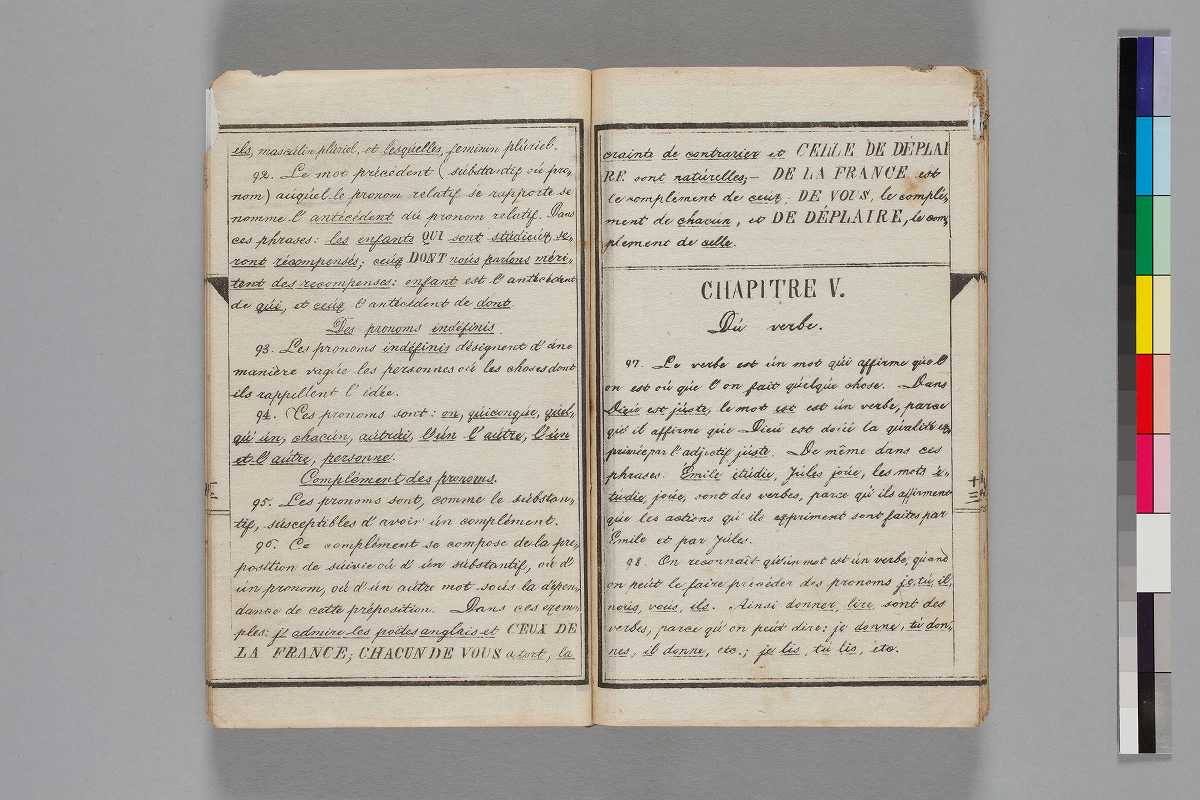 els, masculin pluriel, et lesquelles, feminin pluriel.
92. Le mot précédent (substantif ou pro,
nom) auquel le pronom relatif se rapporte se
nomme l'antécédent du pronom relatif. Dans
ces phrases: les enfants QUI sont studieux se,
ront récompensés; ceux DONT nous parlons méri,
tent des recompenses: enfant est l'antécédent
de qui, et ceux l'antécédent de dont.
Des pronoms indéfinis.
93. Les pronoms indéfinis désignent d'une
manière vague les personnes ou les choses dont
ils rappellent l'idée.
94. Ces pronoms sont: on, quiconque, quel,
qu'un, chacun, autrui, l'un l'autre, l'un
et l'autre, personne.
Complément des pronoms.
95. Les pronoms sont, comme le substan,
tif, susceptibles d'avoir un complément.
96. Ce complément se compose de la pré,
position de suivie ou d'un substantif, ou d'
un pronom, ou d'un autre mot sous la dépen,
dance de cette préposition. Dans ces exem,
ples: j'admire les poëtes anglais et CEUX DE
LA FRANCE; CHACUN DE VOUS a tort, la
crainte de contrarier et CELLE DE DÉPLAI
RE sont naturelles;— DE LA FRANCE est
le complément de ceux; DE VOUS, le complé,
ment de chacun, et DE DÉPLAIRE, le com,
plement de celle.
CHAPITRE V.
Du verbe.
97. Le verbe est un mot qui affirme que l'
on est ou que l'on fait quelque chose. Dans
Dieu est juste, le mot est est un verbe, parce
qu'il affirme que Dieu est doué la qualité ex,
primée par l'adjectif juste. De même dans ces
phrases. Émile étudie, Jules joue, les mots é,
tudie, joue, sont des verbes, parce qu'ils affirment
que les actions qu'ils expriment sont faites par
Émile et par Jules.
98. On reconnaît qu'un mot est un verbe, quand
on peut le faire précéder des pronoms je, tu, il,
nous, vous, ils. Ainsi donner, lire sont des
verbes, parce qu'on peut dire: je donne, tu don,
nes, il donne, etc.; je lis, tu lis, etc.
十三